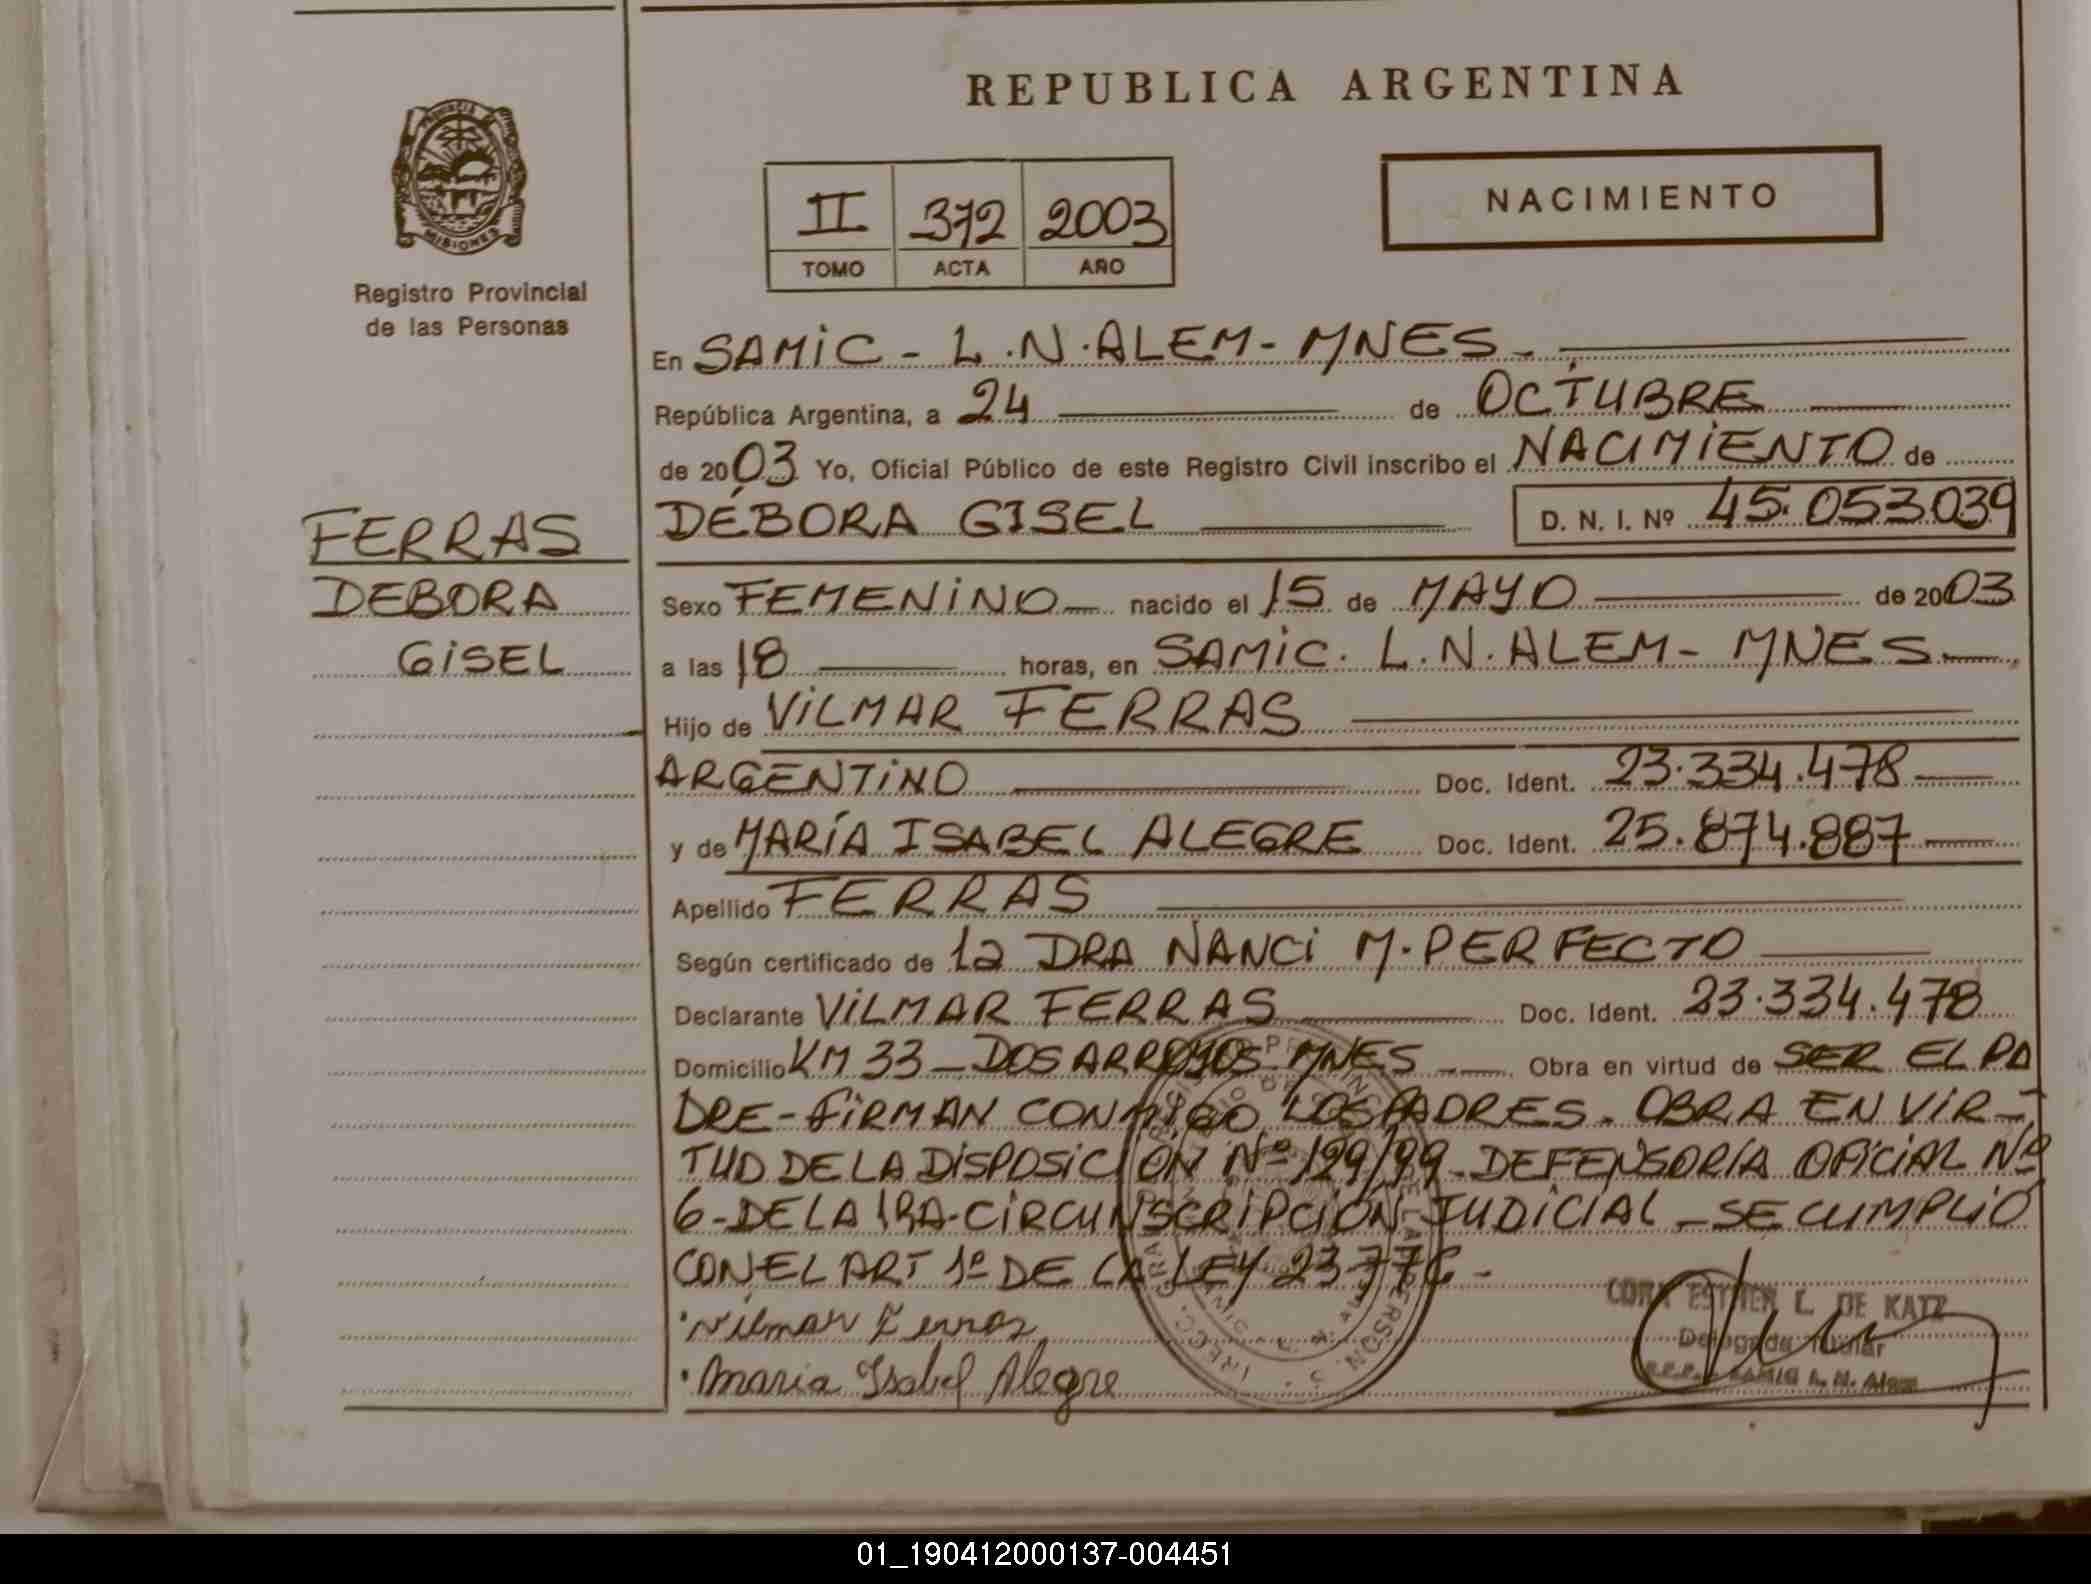 REPUBLICA ARGENTINA
NACIMIENTO
PROVINCIA DE
MISIONES
Registro Provincial
de las Personas
II 372 2003
TOMO ACTA AÑO
En SAMIC - L.N.ALEM - MNES -
República Argentina, a 24 de OCTUBRE
de 2003 Yo, Oficial Público de este Registro Civil inscribo el NACIMIENTO de
DÉBORA GISEL D. N. I. Nº 45.053.039
FERRAS
DEBORA
GISEL
Sexo FEMENINO nacido el 15 de MAYO de 2003
a las 18 horas, en SAMIC. L.N.ALEM - MNES
Hijo de VILMAR FERRAS
ARGENTINO Doc. Ident. 23.334.478
y de MARÍA ISABEL ALEGRE Doc. Ident. 25.874.887
Apellido FERRAS
Según certificado de la DRA NANCI M. PERFECTO
Declarante VILMAR FERRAS Doc. Ident. 23.334.478
Domicilio KM 33 - DOS ARROYOS - MNES Obra en virtud de SER EL PA
DRE - FIRMAN CONMIGO LOS PADRES. OBRA EN VIR-
TUD DE LA DISPOSICIÓN Nº 199/99 - DEFENSORÍA OFICIAL Nº
6 - DE LA 1RA. CIRCUNSCRIPCIÓN JUDICIAL - SE CUMPLIÓ
CON EL ART 1º DE LA LEY 23776 -
Vilmar Ferras
Maria Isabel Alegre
CORA ESTHER L. DE KATZ
Delegada Titular
R.P.P. - SAMIC L. N. Alem
01_190412000137-004451